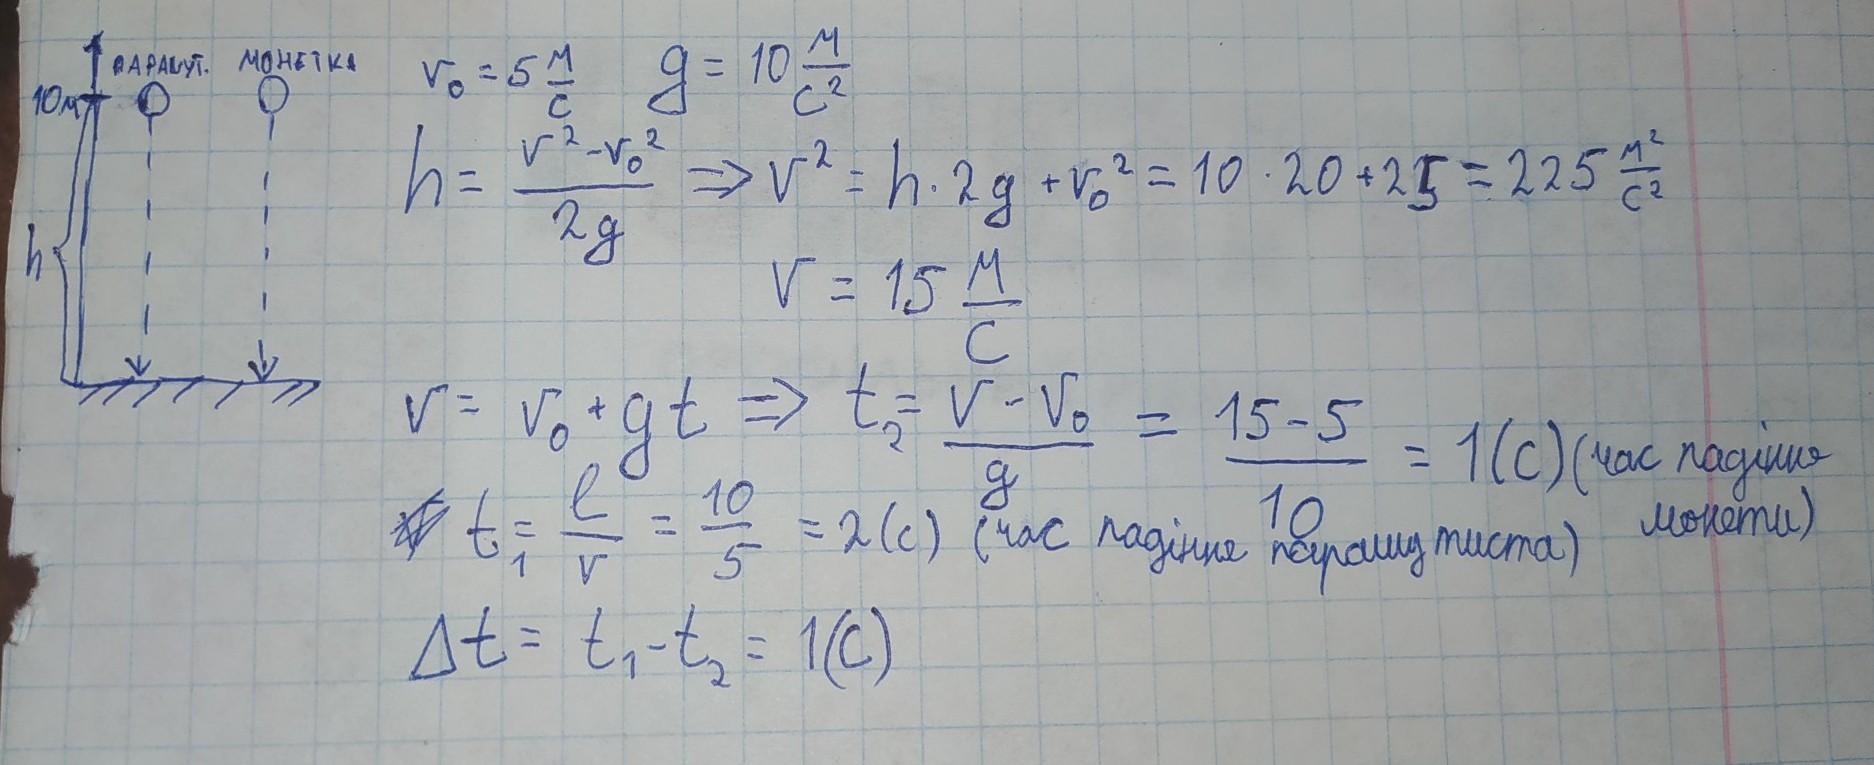 ПАРАШУТ. МОНЕТКА
10м
h
v₀ = 5 м/с g = 10 м/с²
h = (v² - v₀²)/2g ⇒ v² = h · 2g + v₀² = 10 · 20 + 25 = 225 м²/с²
v = 15 м/с
v = v₀ + gt ⇒ t₂ = (v - v₀)/g = (15 - 5)/10 = 1(с) (час падіння монети)
t₁ = l/v = 10/5 = 2(с) (час падіння парашутиста)
Δt = t₁ - t₂ = 1(с)